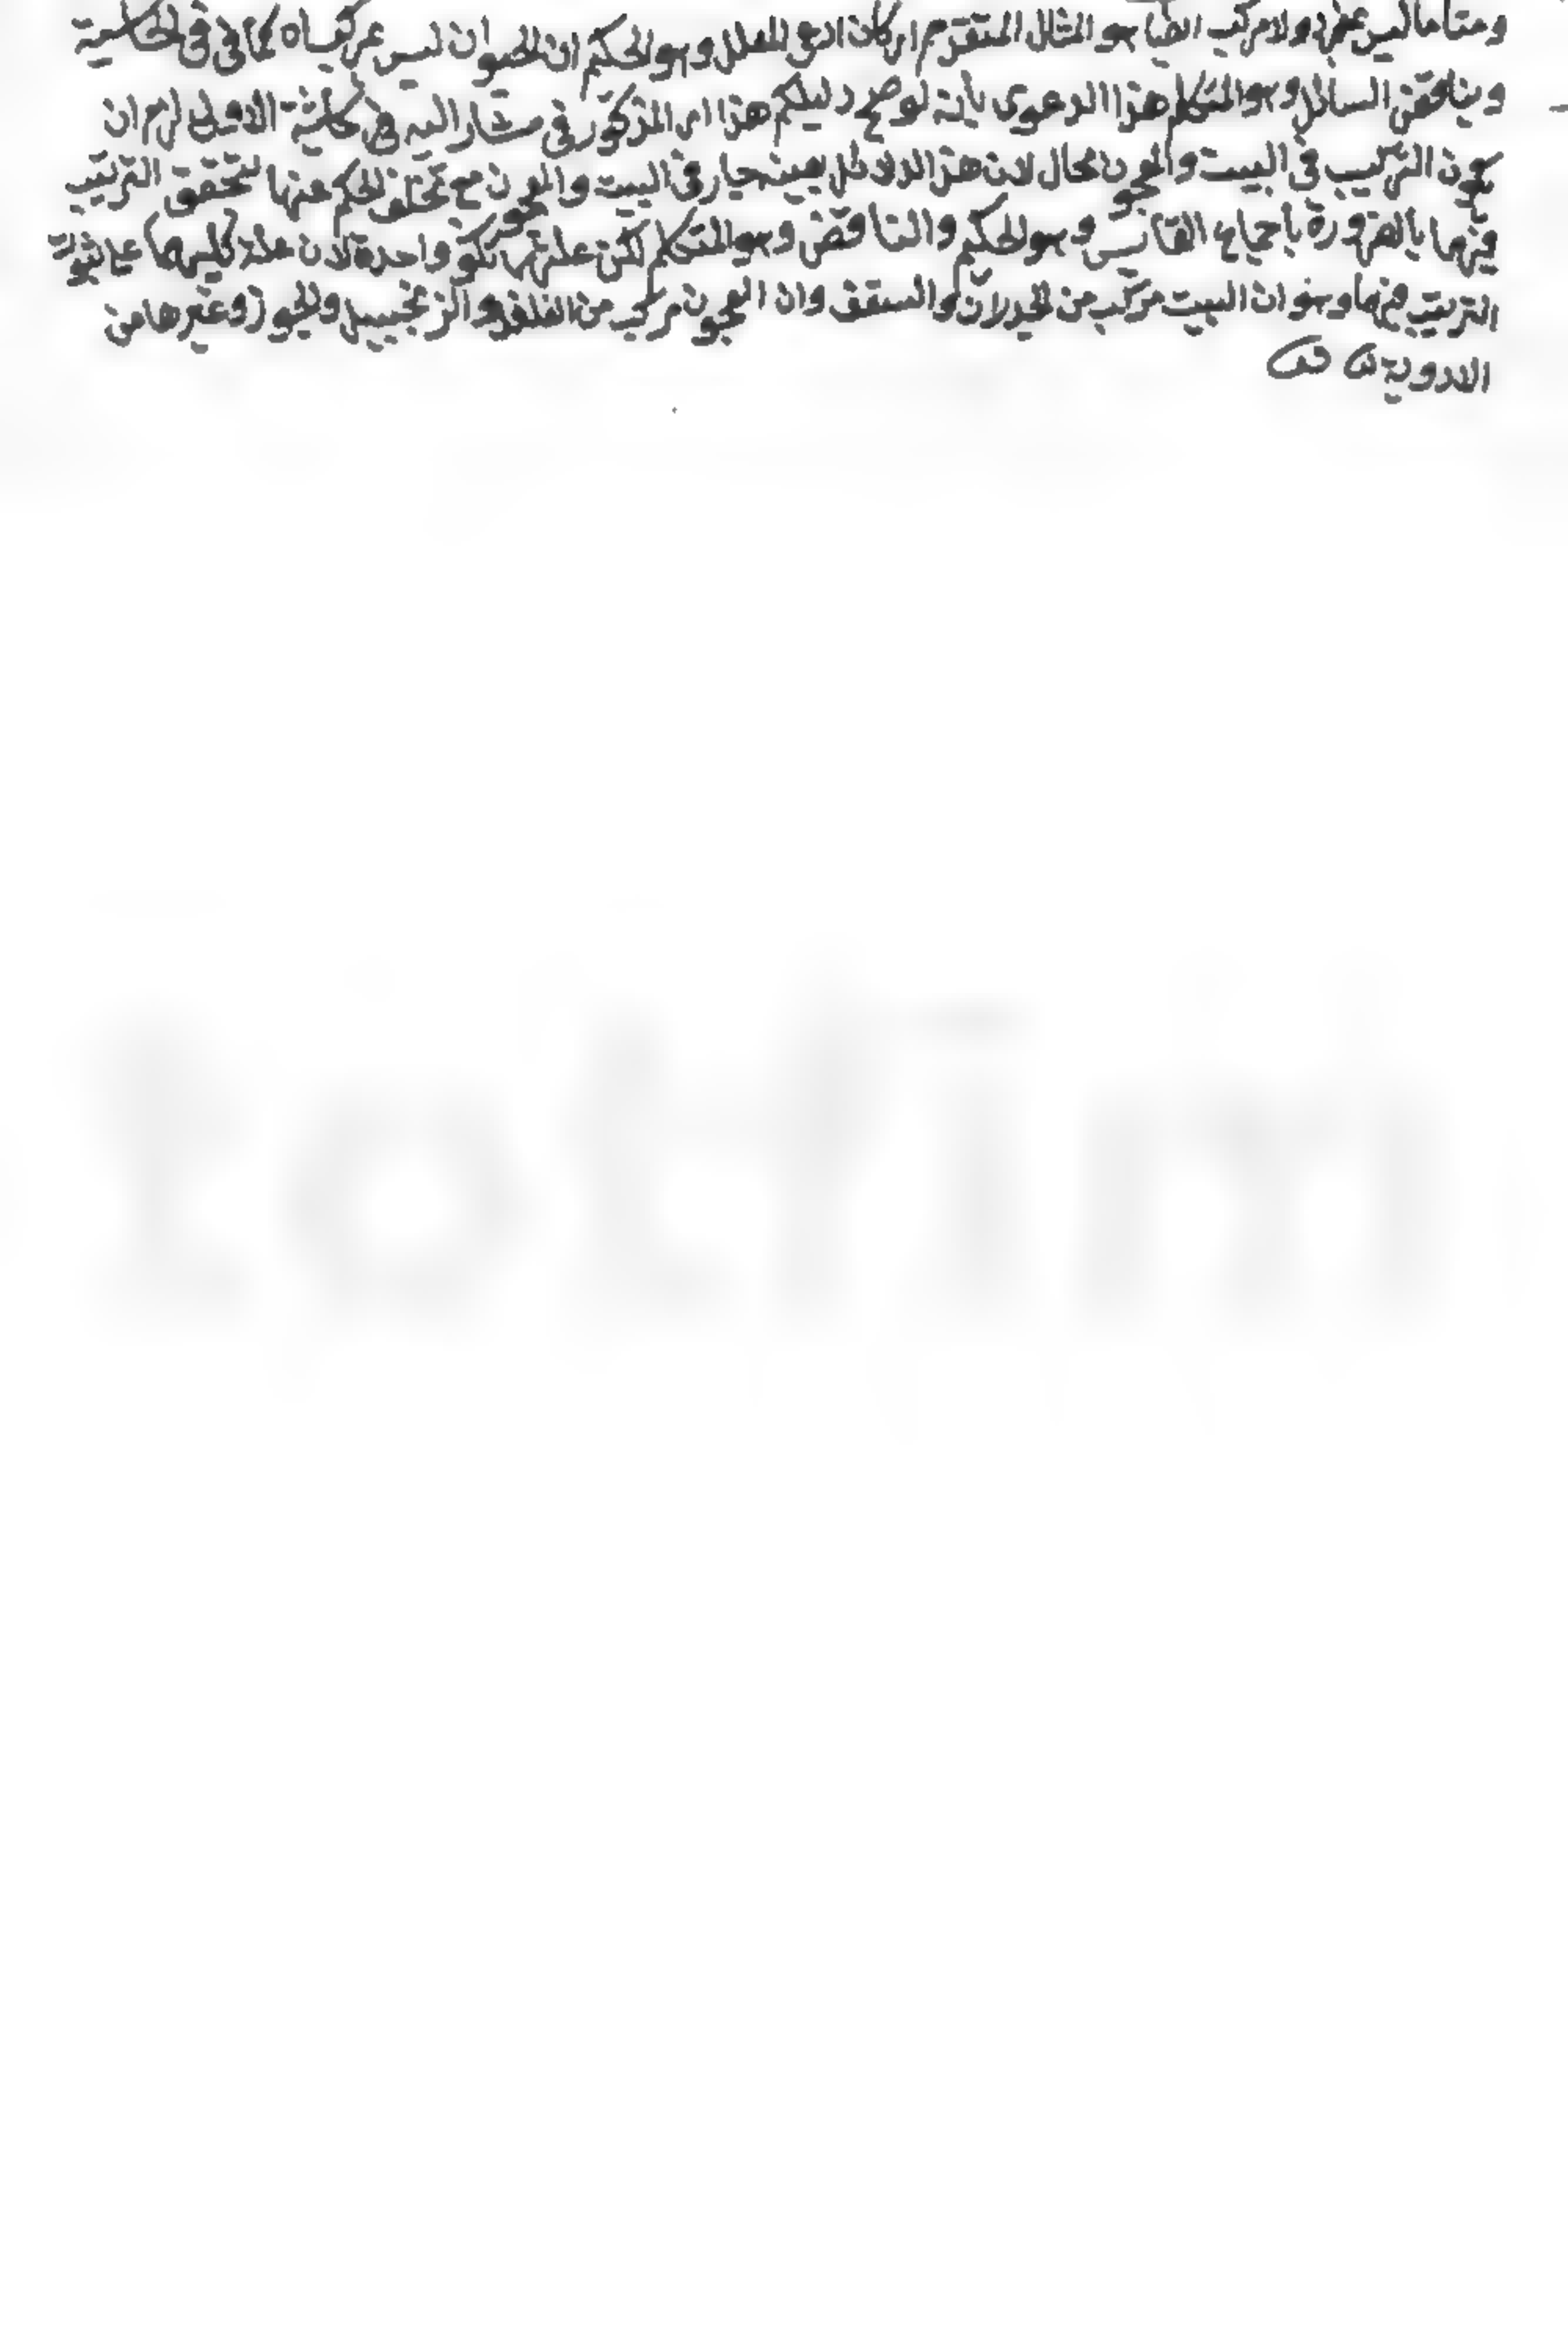 ليس بمفرد ولا مركب ايضا هو المثال المتقدم ان ادعى المعلل وهو الحكيم ان الحيوان ليس كما في الحاشية
ويناقض السائل وهو المتكلم هذا الدعوى بأنه لو صح دليلكم هذا المذكور في مشار اليه في حاشية الاولى لزم ان
يكون التركيب في البيت والمعجون محال لان هذا الدلائل بعينه جار في البيت والمعجون مع تخلف الحكم عنها لتحقق الترتيب
فيهما بالضرورة باجماع وهو الحكيم والناقض وهو المتكلم لكن واحدة لان
الترتيب فيهما وهو ان البيت مركب من الجدران والسقف وان المعجون مركب من الفلفل والزنجبيل والجوز وغيرها من
الادوية
totfim